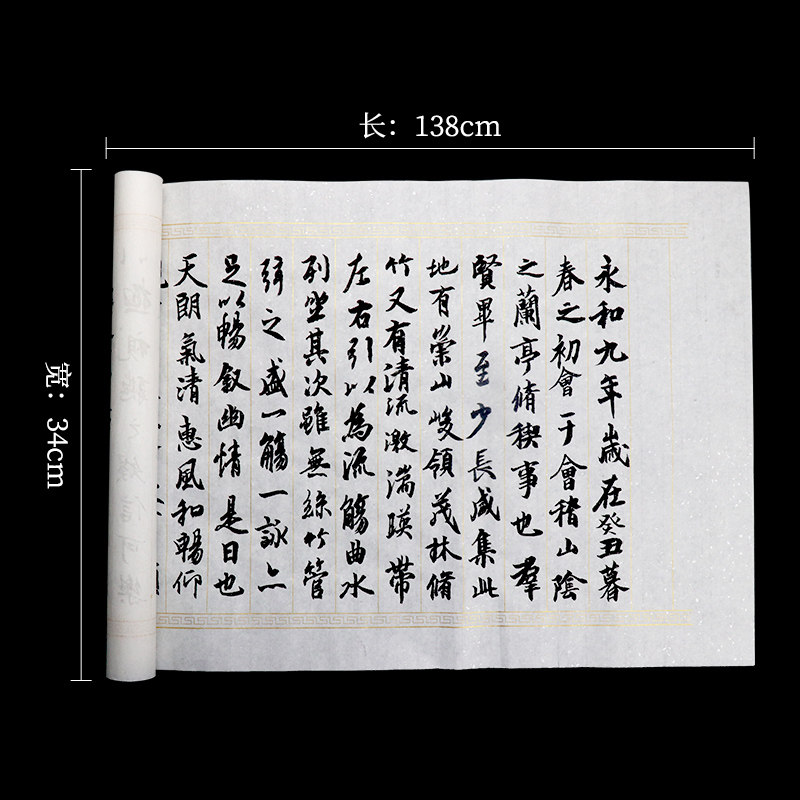 长：138cm
宽：34cm
永和九年歲在癸丑暮
春之初會于會稽山陰
之蘭亭脩稧事也羣
賢畢至少長咸集此
地有崇山峻領茂林脩
竹又有清流激湍暎帶
左右引以為流觴曲水
列坐其次雖無絲竹管
弦之盛一觴一詠亦
足以暢敘幽情是日也
天朗氣清惠風和暢仰